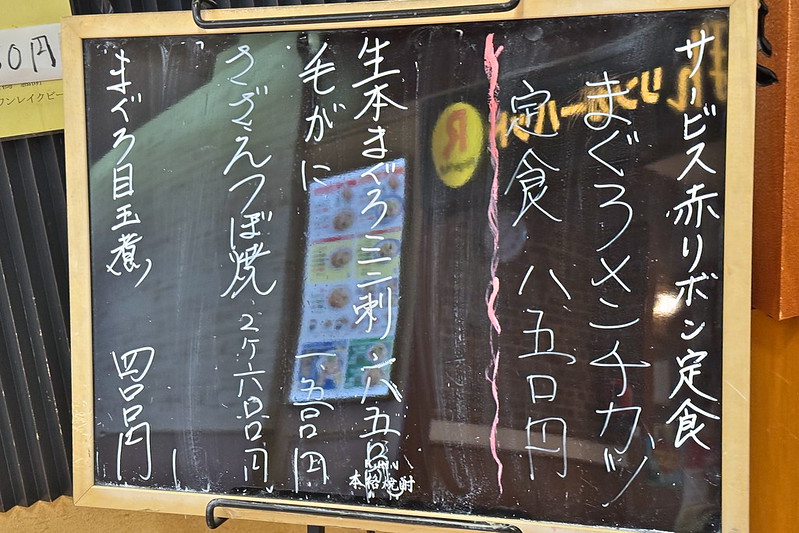 サービス赤リボン定食
まぐろメンチカツ
定食 八五〇円
生本まぐろミニ刺 八五〇
毛がに 一、五〇〇円
さざえつぼ焼 2ケ六〇〇円
まぐろ目玉煮 四〇〇円
本格焼酎
0円
ワンレイクビー
R